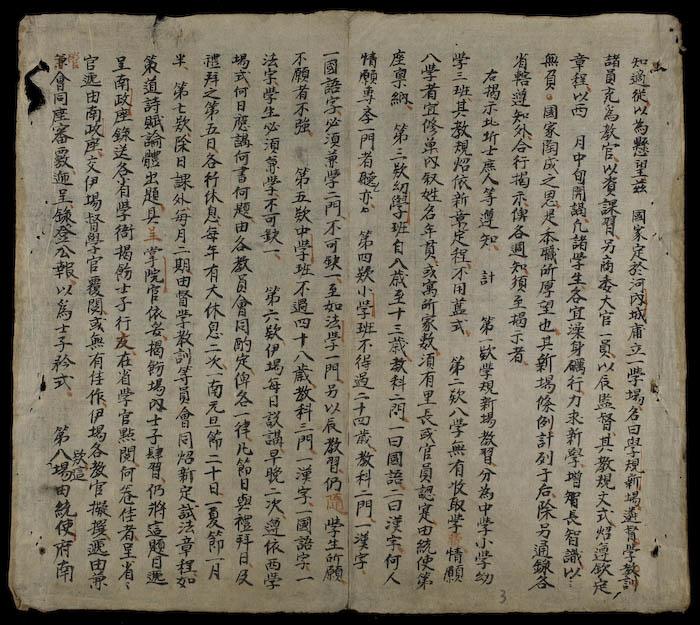 知適從以為懸望茲　國家定於河內城庸立一學場名曰學規新場遴督學教訓
諸員充為教官以責課習另商委大官一員以辰監督其教規文式炤遵欽定
章程以西　月中旬開講凡諸學生各宜澡身礪行力求新學增智長智識以
無負　國家開成之恩是本職所厚望也其新場條例計列于后除另通錄各
省轄遵知外合行揭示俾各週知須至揭示者
右揭示北圻士庶人等遵知　計　第一欵學規新場教習分為中學小學幼
學三班其教規炤依新章定程不用舊式　第二欵入學無有收取學　情願
入學者宜修單內叙姓名年貫或寓所家數須有里長或官員認寔由統使第
座稟納　第三欵幼學班自八歲至十三歲教科二門一曰國語二曰漢字何人
情願專夲一門者聽亦　第四欵小學班不得過二十四歲教科二門一漢字
一國語字必須兼學二門不可缺一至如法學一門另以辰教習仍隨學生所願
不願者不強　第五欵中學班不過四十八歲教科三門一漢字一國語字一
法字學生必須兼學不可缺一　第六欵伊場每日設講早晚二次遵依西學
場式何日應講何書何題由各教員會同酌定俾各一律凡節日與禮拜日及
禮拜之第五日各行休息每年有大休息二次一南元旦節二十日一夏節一月
半　第七欵除日課外每月二期由督學教訓等員會同炤新定試法章程如
策道詩賦論體出題具呈掌院官依名揭飭場內士子肆習仍將這題目遞
呈南政座錄送各省學衙揭飭士子行文在省學官點閱何卷佳者呈省
官遞由南政座交伊場督學官覆閱或無有佳作伊場各教官擬撰遞由兼
管兼會同座審覈遞呈錄登公報以為士子衿式　第八欵這場由統使府南